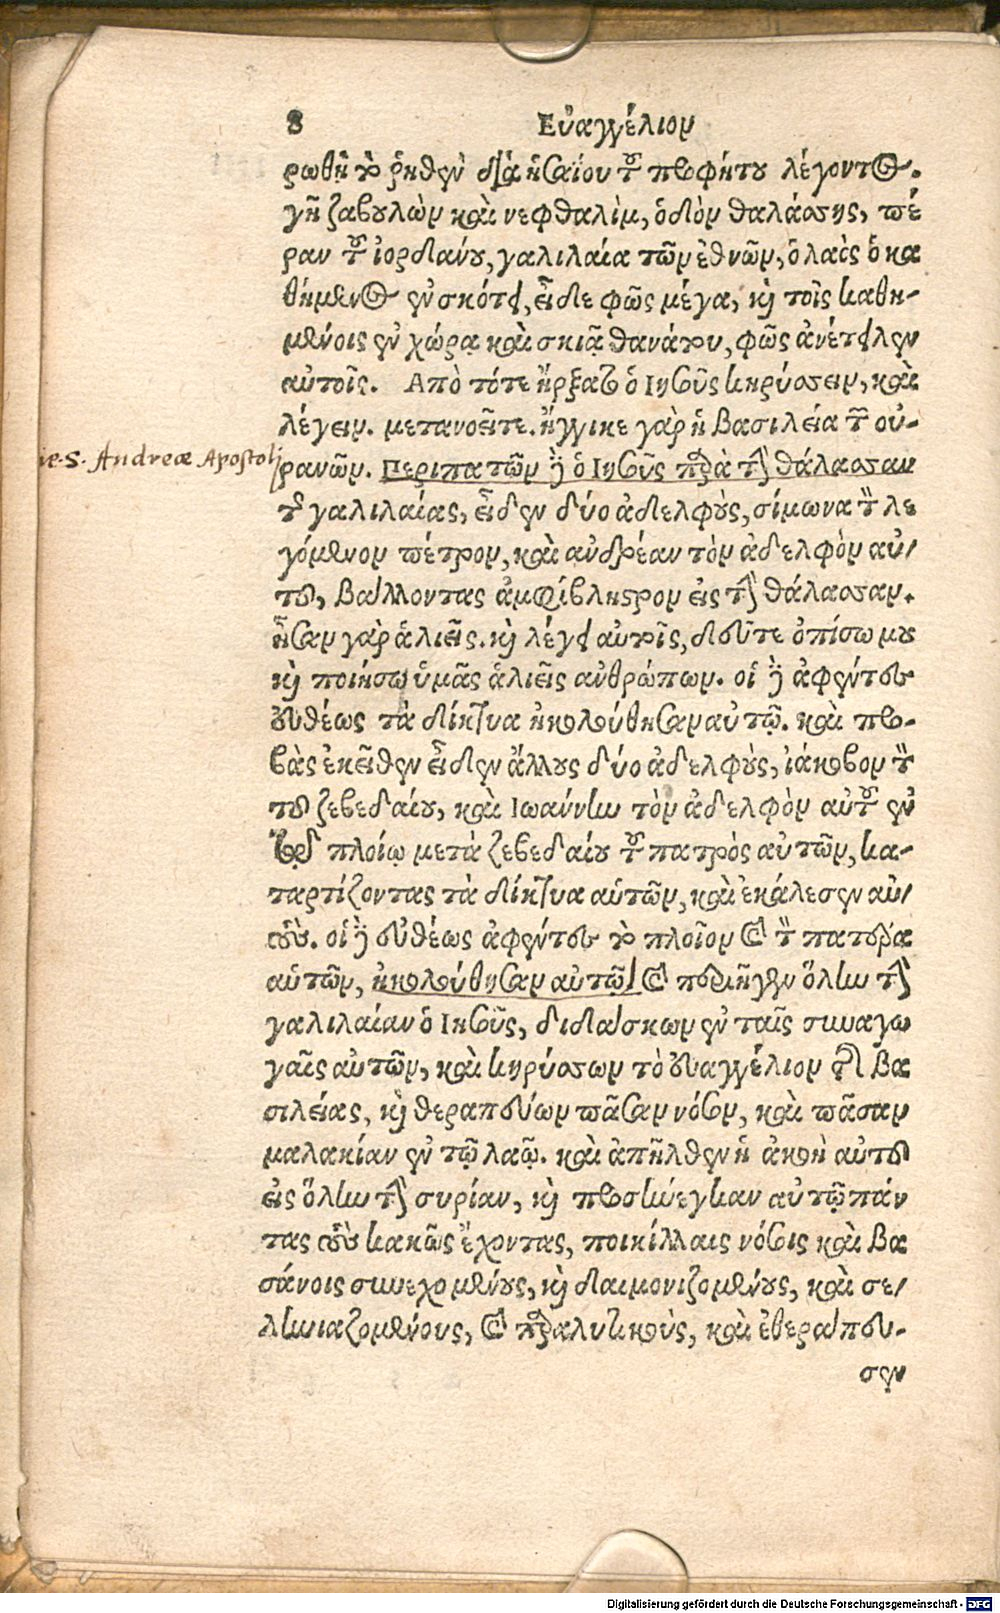 8 Εὐαγγέλιον
ρωθῇ τὸ ῥηθὲν διὰ ἡσαΐου τοῦ προφήτου λέγοντος.
γῆ ζαβουλὼν καὶ νεφθαλὶμ, ὁδὸν θαλάσσης, πέ
ραν τοῦ ἰορδάνου, γαλιλαία τῶν ἐθνῶν, ὁ λαὸς ὁ κα
θήμενος ἐν σκότει, εἶδε φῶς μέγα, καὶ τοῖς καθη-
μένοις ἐν χώρᾳ καὶ σκιᾷ θανάτου, φῶς ἀνέτειλεν
αὐτοῖς. Απὸ τότε ἤρξατο ὁ Ιησοῦς κηρύσσειν, καὶ
λέγειν. μετανοεῖτε. ἤγγικε γὰρ ἡ βασιλεία τῶν οὐ-
ie. S. Andreæ Apostoli
ρανῶν. Περιπατῶν δὲ ὁ Ιησοῦς παρὰ τὴν θάλασσαν
τῆς γαλιλαίας, εἶδεν δύο ἀδελφοὺς, σίμωνα τὸν λε
γόμενον πέτρον, καὶ ἀνδρέαν τὸν ἀδελφὸν αὐ/
τοῦ, βάλλοντας ἀμφίβληστρον εἰς τὴν θάλασσαν.
ἦσαν γὰρ ἁλιεῖς. καὶ λέγει αὐτοῖς, δεῦτε ὀπίσω μου
καὶ ποιήσω ὑμᾶς ἁλιεῖς ἀνθρώπων. οἱ δὲ ἀφέντες
εὐθέως τὰ δίκτυα ἠκολούθησαν αὐτῷ. καὶ προ-
βὰς ἐκεῖθεν εἶδεν ἄλλους δύο ἀδελφοὺς, ἰάκοβον τὸν
τοῦ ζεβεδαίου, καὶ Ιωάννην τὸν ἀδελφὸν αὐτοῦ ἐν
τῷ πλοίῳ μετὰ ζεβεδαίου τοῦ πατρὸς αὐτῶν, κα-
ταρτίζοντας τὰ δίκτυα αὑτῶν, καὶ ἐκάλεσεν αὐ/
τούς. οἱ δὲ εὐθέως ἀφέντες τὸ πλοῖον καὶ τὸν πατέρα
αὑτῶν, ἠκολούθησαν αὐτῷ. καὶ περιῆγεν ὅλην τὴν
γαλιλαίαν ὁ Ιησοῦς, διδάσκων ἐν ταῖς συναγω
γαῖς αὐτῶν, καὶ κηρύσσων τὸ εὐαγγέλιον τῆς βα
σιλείας, καὶ θεραπεύων πᾶσαν νόσον, καὶ πᾶσαν
μαλακίαν ἐν τῷ λαῷ. καὶ ἀπῆλθεν ἡ ἀκοὴ αὐτοῦ
εἰς ὅλην τὴν συρίαν, καὶ προσήνεγκαν αὐτῷ πάν
τας τοὺς κακῶς ἔχοντας, ποικίλλαις νόσοις καὶ βα
σάνοις συνεχομένους, καὶ δαιμονιζομένους, καὶ σε/
ληνιαζομένους, καὶ παραλυτικοὺς, καὶ ἐθεράπευ-
σεν
Digitalisierung gefördert durch die Deutsche Forschungsgemeinschaft - DFG